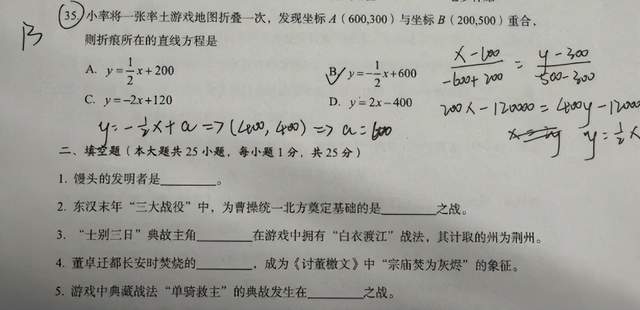 B
35. 小率将一张率土游戏地图折叠一次，发现坐标 A（600,300）与坐标 B（200,500）重合，
则折痕所在的直线方程是
A. y=1/2x+200
B. y=-1/2x+600
C. y=-2x+120
D. y=2x-400
x-600/-600+200 = y-300/500-300
200x-120000=400y-12000
y=1/2x
y=-1/2x+a=>(400,400)=>a=600
二、填空题（本大题共25小题，每小题1分，共25分）
1. 馒头的发明者是________。
2. 东汉末年“三大战役”中，为曹操统一北方奠定基础的是________之战。
3. “士别三日”典故主角________在游戏中拥有“白衣渡江”战法，其计取的州为荆州。
4. 董卓迁都长安时焚烧的________，成为《讨董檄文》中“宗庙焚为灰烬”的象征。
5. 游戏中典藏战法“单骑救主”的典故发生在________之战。